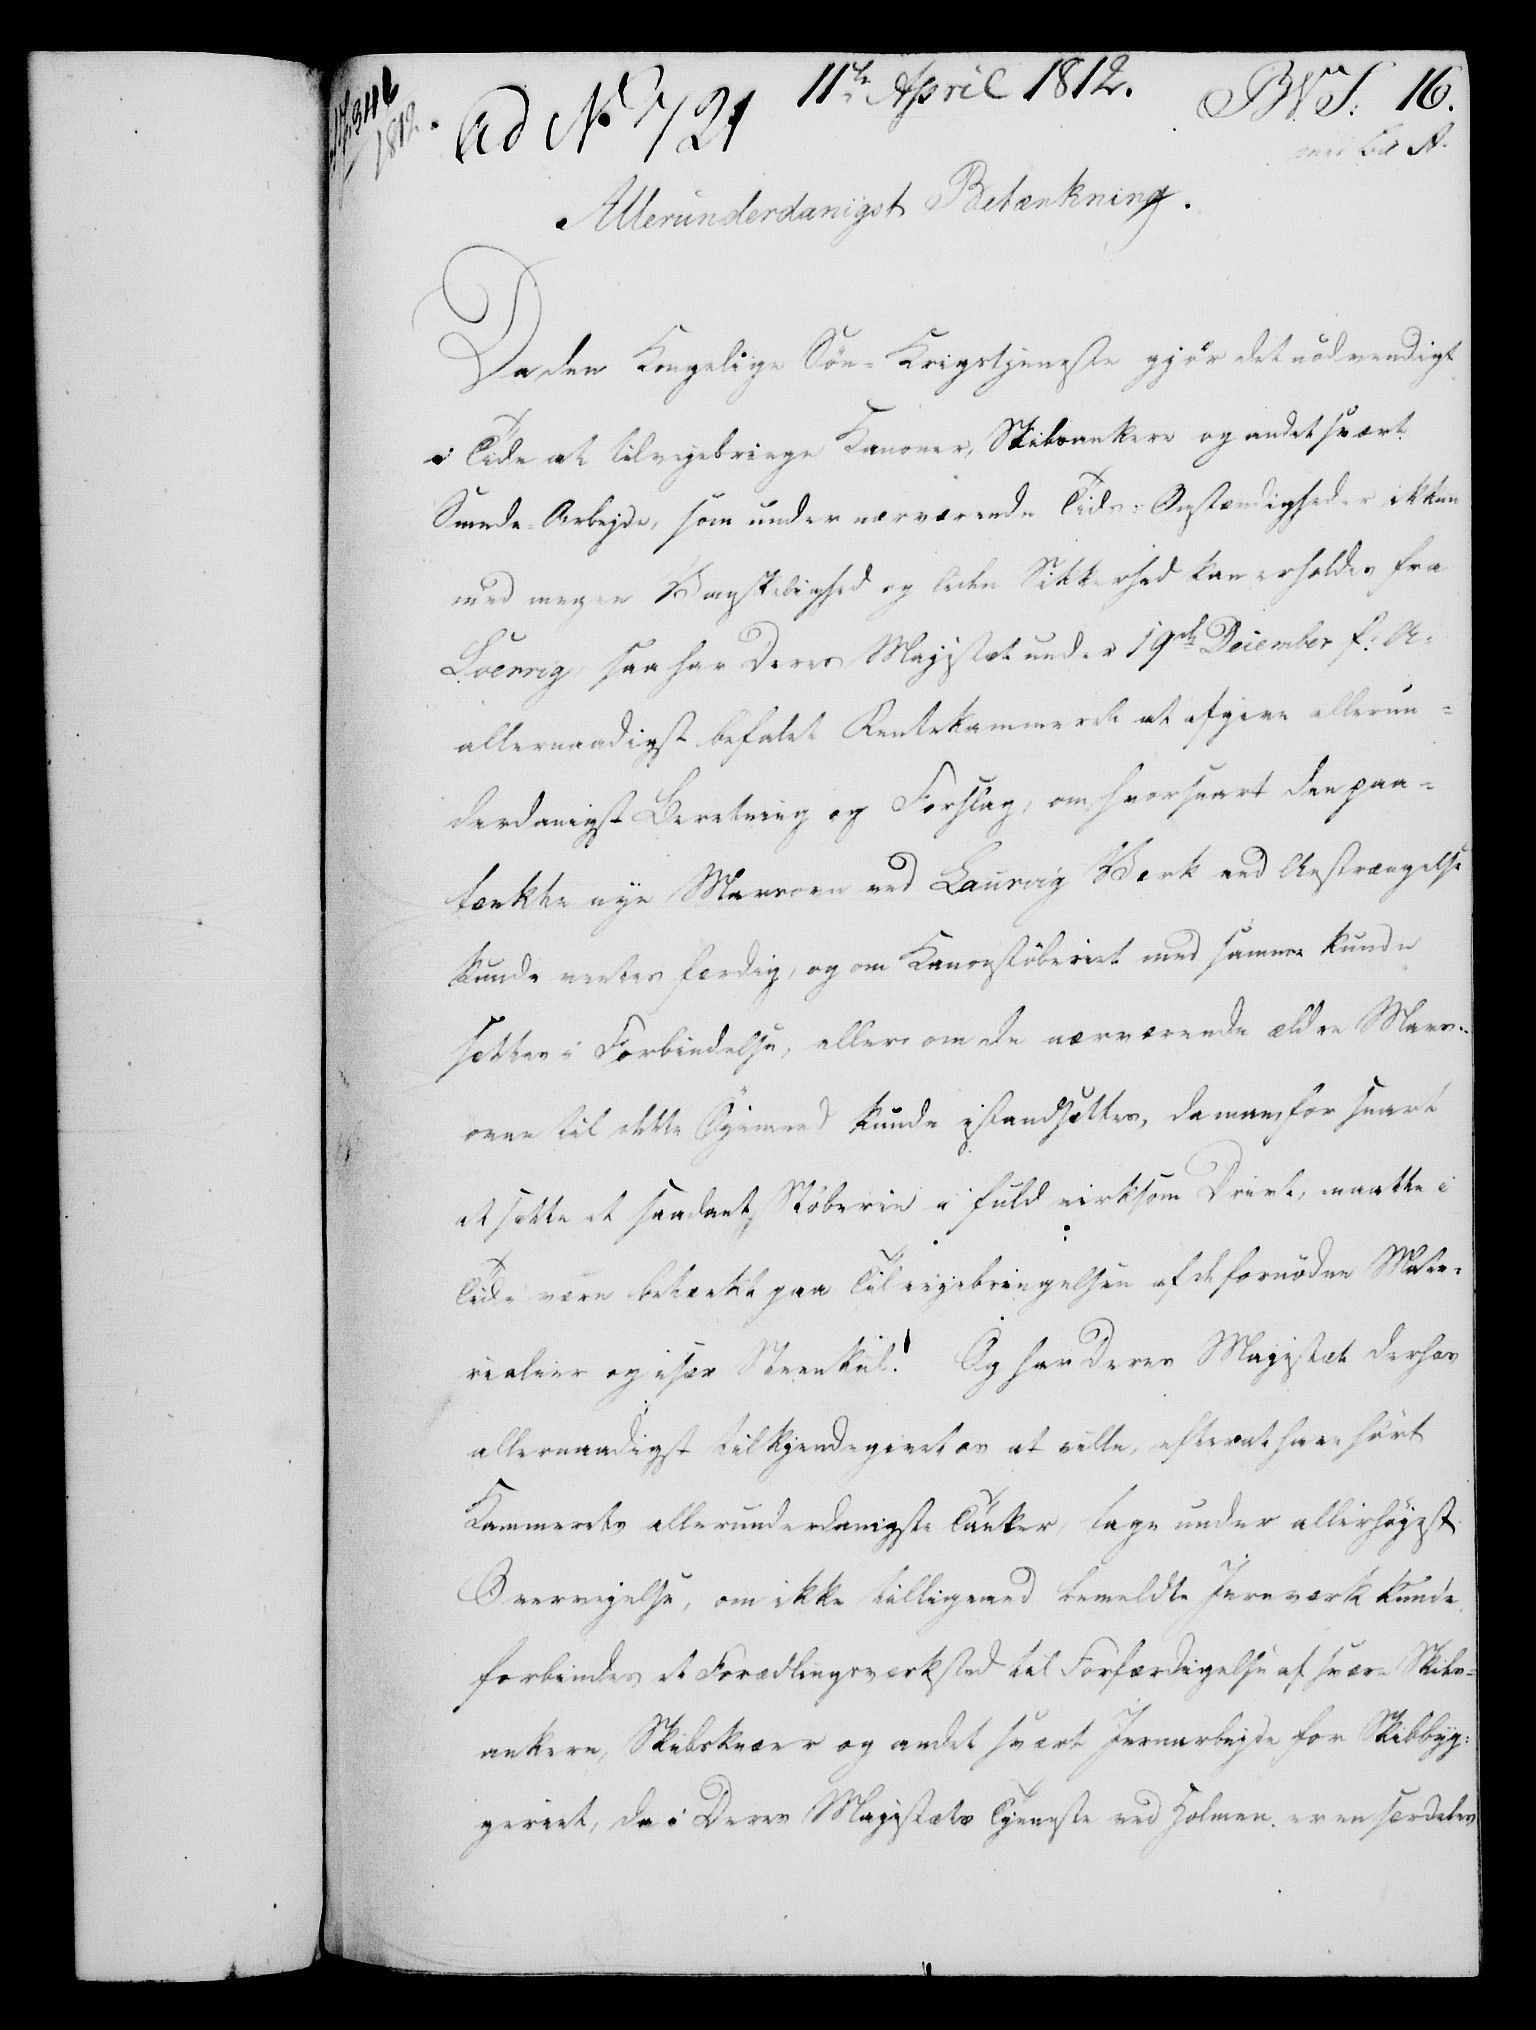 346
1812.
ad No 721
11te April 1812.
B. V. S. 16.
med Bil A.
Allerunderdanigst Betænkning.
Da den Kongelige Söe-Krigstjeneste gjör det nödvendigt
i Tide at tilvejebringe Kanoner, Skibsankere og andet svært
Smede-Arbejde, som under nærværende Tids-Omstændigheder ikkun
med megen Vanskelighed og liden Sikkerhed kan erholdes fra
saa har Deres Majestæt under 19de December f: A:
allernaadigst befalet Rentekammeret at afgive allerun-
derdanigst Beretning og Forslag, om hvorsnart den paa-
tænkte nye Masovn ved Laurvig Værk ved Anstrængelse
kunde ventes færdig, og om Kanonstöberiet med samme kunde
sættes i Forbindelse, eller om de nærværende ældre Mas-
ovne til dette Öjemed kunde istandsættes, da man, for snart
at sætte et saadant Stöberie i fuld virksom Drivt, maatte i
Tide være betænkt paa Tilvejebringelsen af de fornödne Mate-
rialier og især Steenkul! Og har Deres Majestæt derhos
allernaadigst tilkjendegivet os at ville, efterat have hört
Kammerets allerunderdanigste Tanker, tage under allerhöjest
Overvejelse, om ikke tilligemed bemeldte Jernværk kunde
forbindes et Forædlingsværksted til Forfærdigelse af svære Skibs-
ankere, Skibsknæer og andet svært Jernarbejde for Skibbyg-
geriet, da i Deres Majestæts Tjeneste ved Holmen er en særdeles